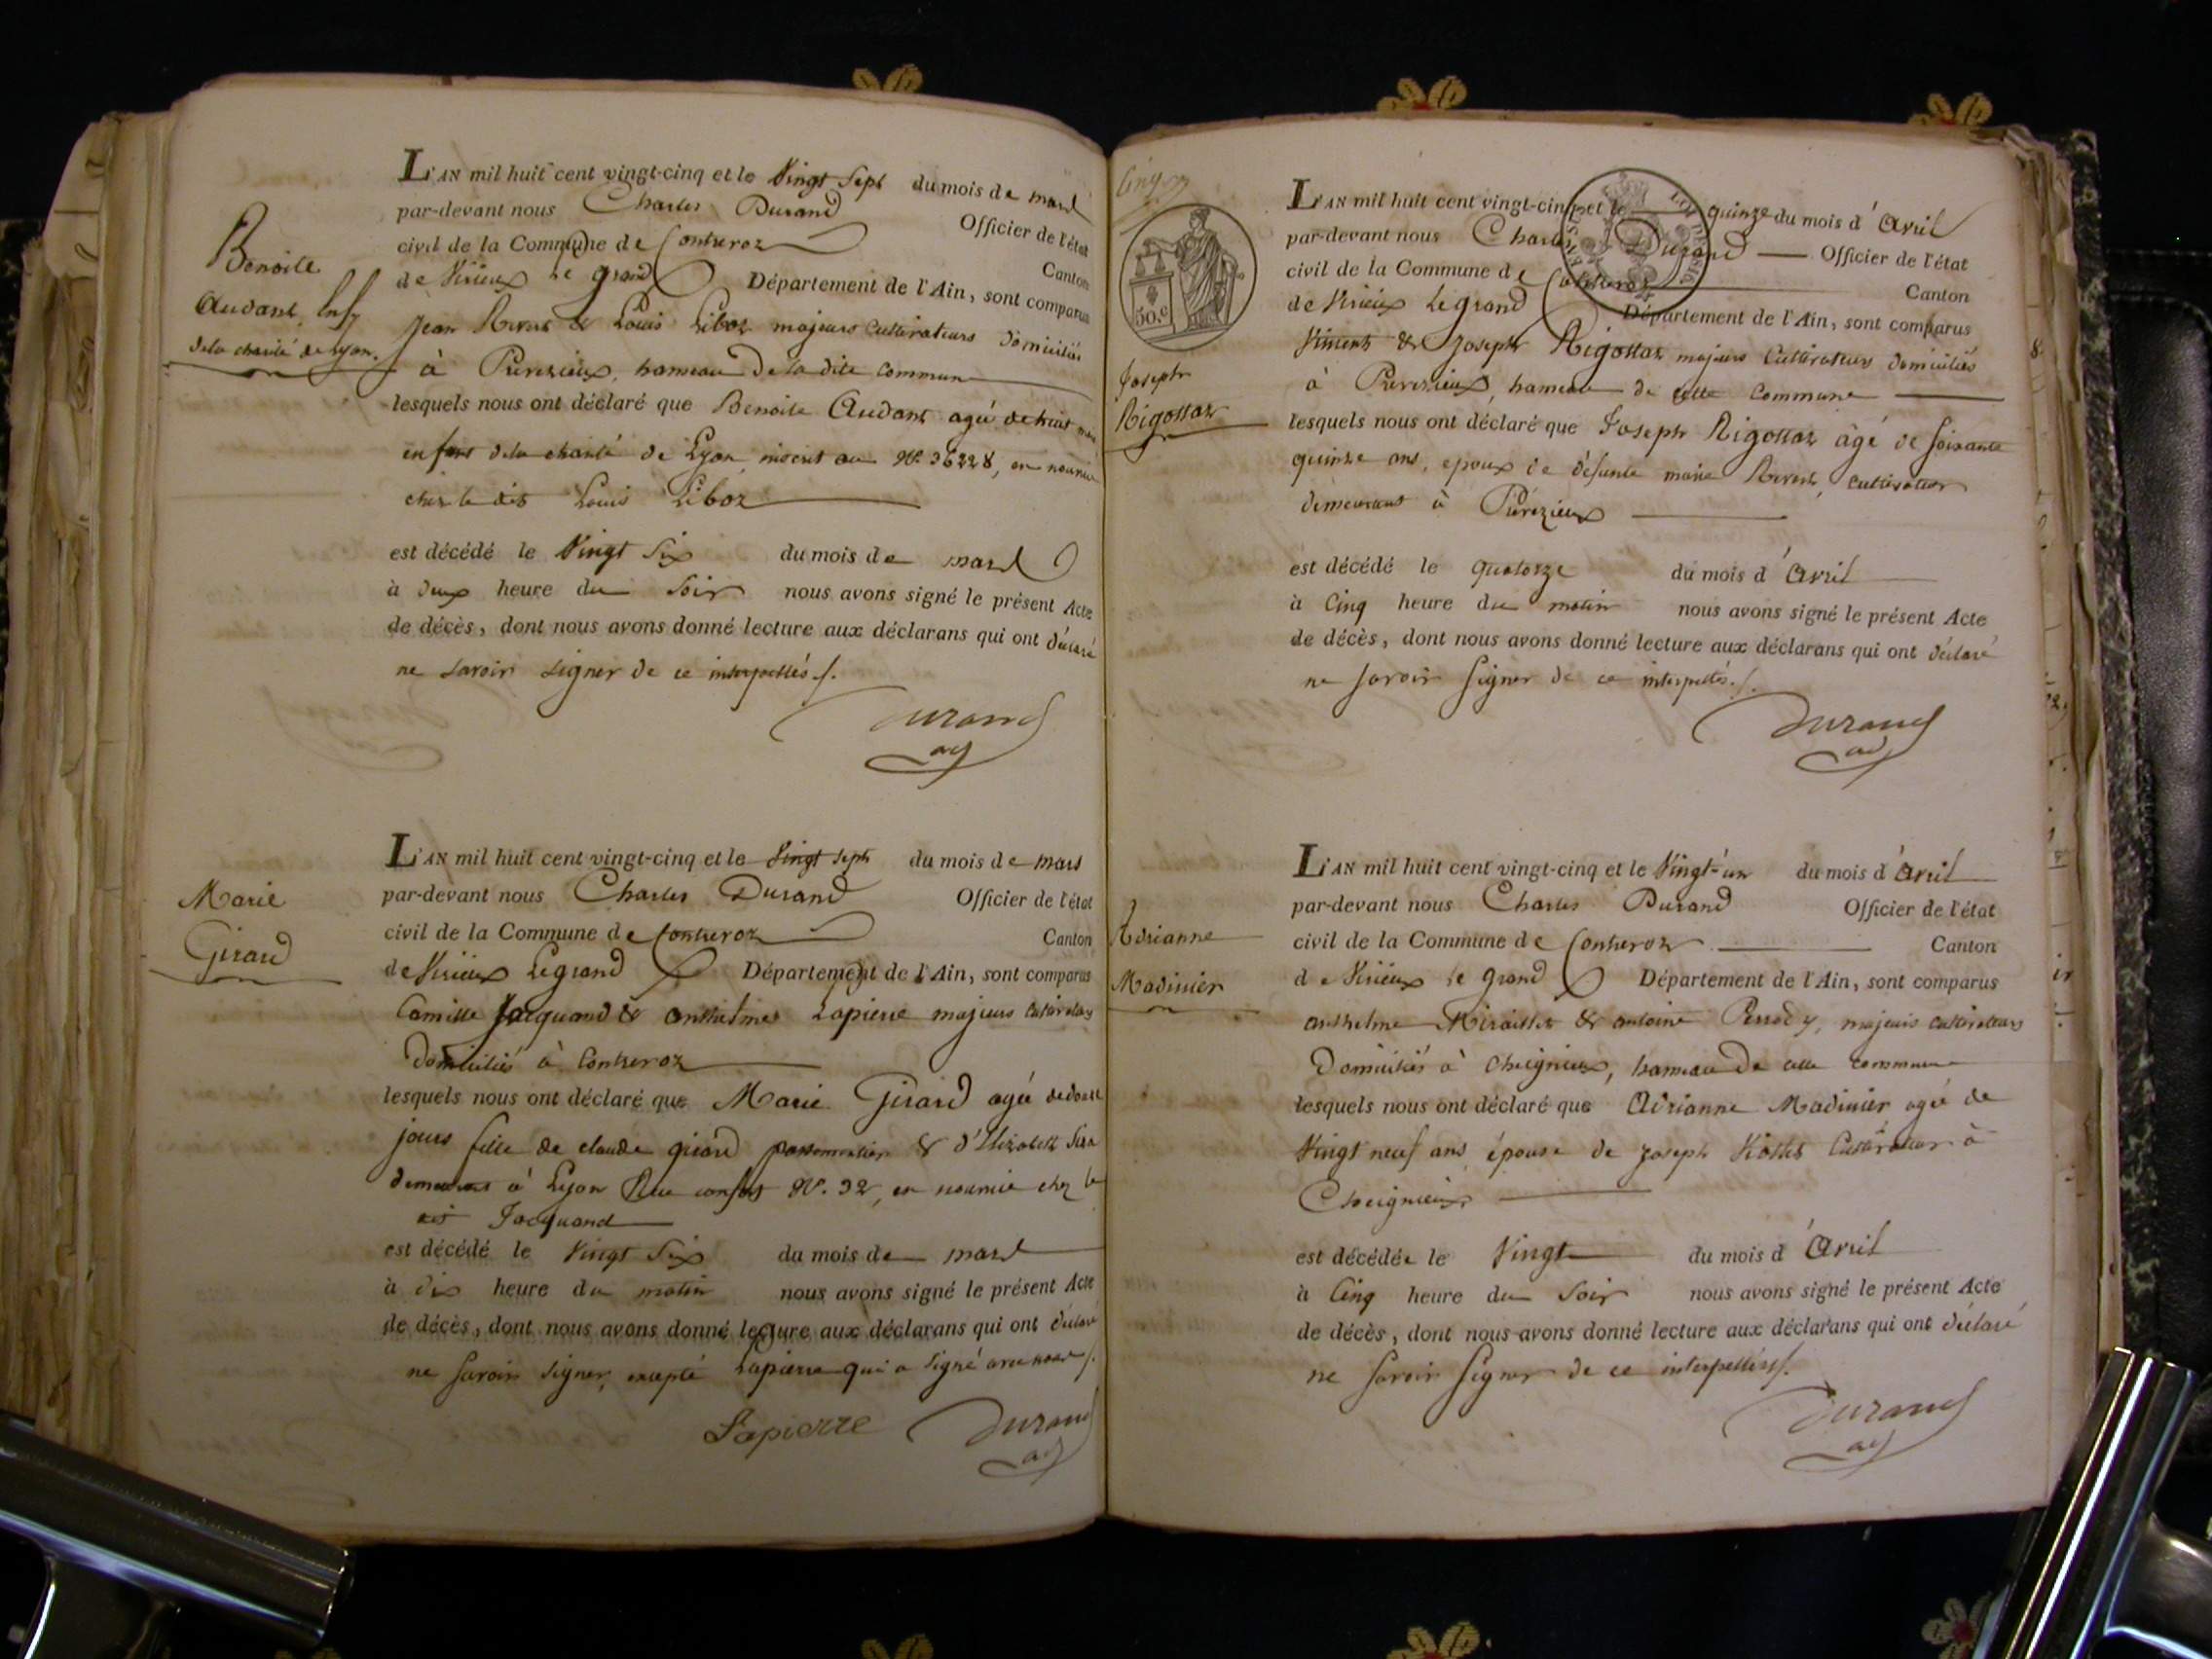 L'AN mil huit cent vingt-cinq et le Vingt Sept du mois de mars
par-devant nous Charles Durand Officier de l'état
civil de la Commune de Contrevoz Canton
de Virieux Le grand Département de l'Ain, sont comparus
Jean & Louis Liboz majeurs cultivateurs domiciliés
à hameau de la dite commune
lesquels nous ont déclaré que Benoite Audant agée de huit mois
enfant de la charité de Lyon, inscrit au N°. 36228, en nourrice
chez le dit Louis Liboz
est décédé le Vingt Six du mois de mars
à deux heure du Soir nous avons signé le présent Acte
de décès, dont nous avons donné lecture aux déclarans qui ont déclaré
ne savoir signer de ce interpellés ./.
Durand
adj
Benoite
Audant,
de la charité de Lyon.
L'AN mil huit cent vingt-cinq et le Vingt sept du mois de mars
par-devant nous Charles Durand Officier de l'état
civil de la Commune de Contrevoz Canton
de Virieux Legrand Département de l'Ain, sont comparus
Camille Jacquand & anthelme Lapierre majeurs cultivateurs
Domiciliés à Contrevoz
lesquels nous ont déclaré que Marie Girard agée de douze
jours fille de claude girard & d'Elizabeth
demeurant à Lyon Rue confort N°. 32, en nourrice chez le
dit Jacquand
est décédé le Vingt Six du mois de mars
à dix heure du matin nous avons signé le présent Acte
de décès, dont nous avons donné lecture aux déclarans qui ont déclaré
ne savoir signer, excepté Lapierre qui a signé avec nous ./.
Lapierre Durand
adj
Marie
Girard
L'AN mil huit cent vingt-cinq et le quinze du mois d'Avril
par-devant nous Charles Durand Officier de l'état
civil de la Commune de Contrevoz Canton
de Virieux Le grand Département de l'Ain, sont comparus
Vincent & Joseph Rigottaz majeurs Cultivateurs domiciliés
à hameau de cette commune
lesquels nous ont déclaré que Joseph Rigottaz âgé de soixante
quinze ans, epoux de défunte marie cultivateur
demeurant à
est décédé le quatorze du mois d'Avril
à Cinq heure du matin nous avons signé le présent Acte
de décès, dont nous avons donné lecture aux déclarans qui ont déclaré
ne savoir signer de ce interpellés ./.
Durand
adj
50.c
Joseph
Rigottaz
L'AN mil huit cent vingt-cinq et le Vingt-un du mois d'Avril
par-devant nous Charles Durand Officier de l'état
civil de la Commune de Contrevoz Canton
de Virieux le grand Département de l'Ain, sont comparus
anthelme & antoine Perrody, majeurs cultivateurs
Domiciliés à Cheignieux, hameau de cette commune
lesquels nous ont déclaré que Adrianne Madinier agée de
Vingt neuf ans, épouse de Joseph Cultivateur à
Cheignieux
est décédée le Vingt du mois d'Avril
à Cinq heure du Soir nous avons signé le présent Acte
de décès, dont nous avons donné lecture aux déclarans qui ont déclaré
ne savoir signer de ce interpellés ./.
Durand
adj
Adrianne
Madinier